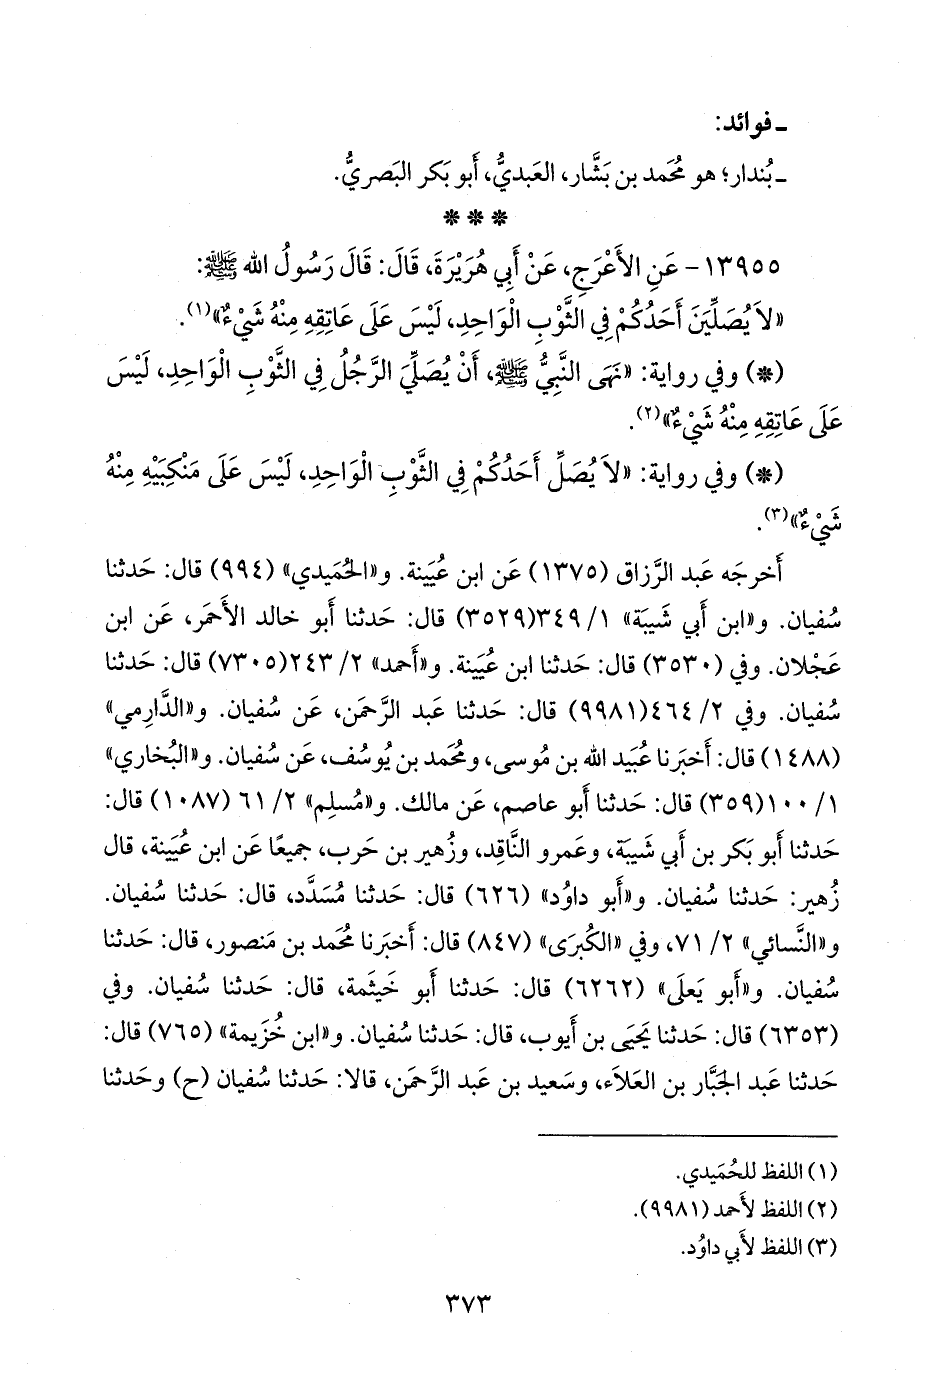 ـ فوائد:
ـ بُندار؛ هو مُحمد بن بَشَّار، العَبديُّ، أَبو بَكر البَصريُّ.
* * *
١٣٩٥٥ - عَنِ الأَعْرَجِ، عَنْ أَبِي هُرَيْرَةَ، قَالَ: قَالَ رَسُولُ الله ﷺ:
«لاَ يُصَلِّيَنَّ أَحَدُكُمْ فِي الثَّوْبِ الْوَاحِدِ، لَيْسَ عَلَى عَاتِقِهِ مِنْهُ شَيْءٌ»(١).
(*) وفي رواية: «نَهَى النَّبِيُّ ﷺ، أَنْ يُصَلِّيَ الرَّجُلُ فِي الثَّوْبِ الْوَاحِدِ، لَيْسَ
عَلَى عَاتِقِهِ مِنْهُ شَيْءٌ»(٢).
(*) وفي رواية: «لاَ يُصَلِّ أَحَدُكُمْ فِي الثَّوْبِ الْوَاحِدِ، لَيْسَ عَلَى مَنْكِبَيْهِ مِنْهُ
شَيْءٌ»(٣).
أَخرجَه عَبد الرَّزاق (١٣٧٥) عَن ابن عُيَينة. و«الحُمَيدي» (٩٩٤) قال: حَدثنا
سُفيان. و«ابن أَبي شَيبَة» ١/ ٣٤٩(٣٥٢٩) قال: حَدثنا أَبو خالد الأَحمَر، عَن ابن
عَجْلان. وفي (٣٥٣٠) قال: حَدثنا ابن عُيَينة. و«أَحمد» ٢/ ٢٤٣(٧٣٠٥) قال: حَدثنا
سُفيان. وفي ٢/ ٤٦٤(٩٩٨١) قال: حَدثنا عَبد الرَّحمَن، عَن سُفيان. و«الدَّارِمي»
(١٤٨٨) قال: أَخبَرنا عُبَيد الله بن مُوسى، ومُحمد بن يُوسُف، عَن سُفيان. و«البُخاري»
١/ ١٠٠(٣٥٩) قال: حَدثنا أَبو عاصم، عَن مالك. و«مُسلِم» ٢/ ٦١ (١٠٨٧) قال:
حَدثنا أَبو بَكر بن أَبي شَيبَة، وعَمرو النَّاقِد، وزُهير بن حَرب، جميعًا عَن ابن عُيَينة، قال
زُهير: حَدثنا سُفيان. و«أَبو داوُد» (٦٢٦) قال: حَدثنا مُسَدَّد، قال: حَدثنا سُفيان.
و«النَّسائي» ٢/ ٧١، وفي «الكُبرَى» (٨٤٧) قال: أَخبَرنا مُحمد بن مَنصور، قال: حَدثنا
سُفيان. و«أَبو يَعلَى» (٦٢٦٢) قال: حَدثنا أَبو خَيثَمة، قال: حَدثنا سُفيان. وفي
(٦٣٥٣) قال: حَدثنا يَحيَى بن أَيوب، قال: حَدثنا سُفيان. و«ابن خُزَيمة» (٧٦٥) قال:
حَدثنا عَبد الجَبَّار بن العَلاَء، وسَعيد بن عَبد الرَّحمَن، قالا: حَدثنا سُفيان (ح) وحَدثنا
(١) اللفظ للحُمَيدي.
(٢) اللفظ لأَحمد (٩٩٨١).
(٣) اللفظ لأَبي داوُد.
٣٧٣